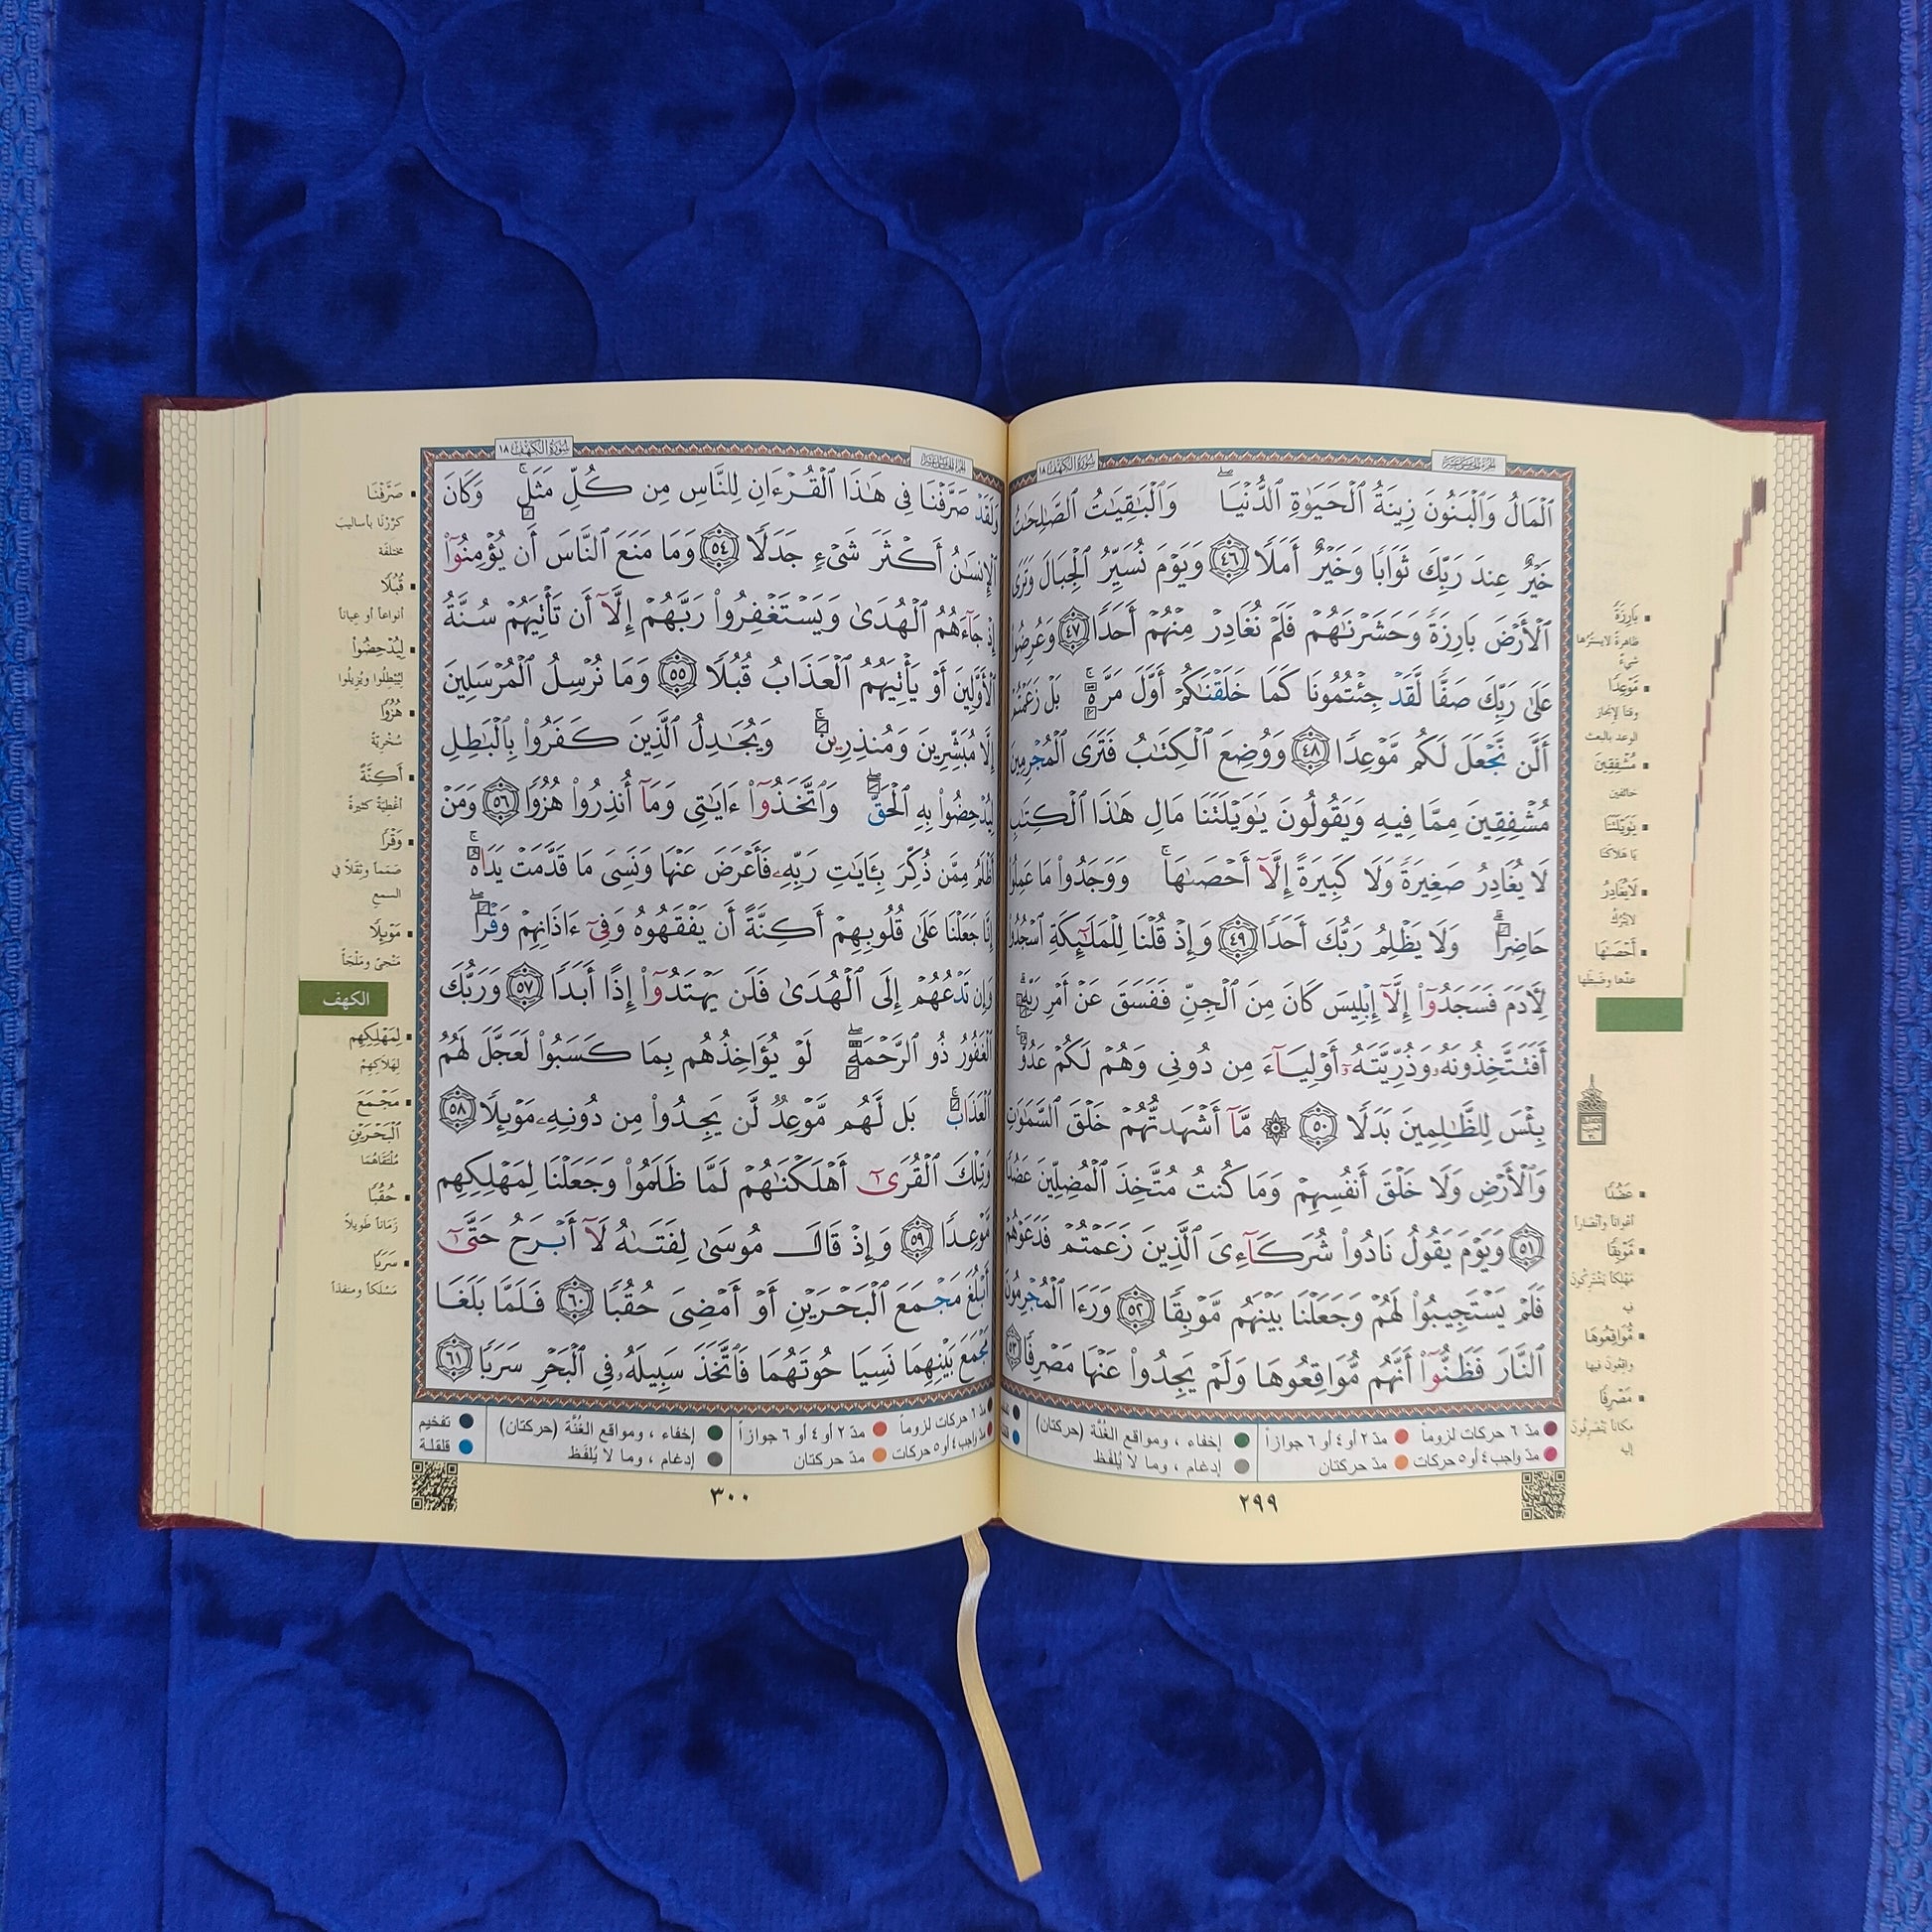 سُورَةُ الكَهْفِ ١٨
ٱلْمَالُ وَٱلْبَنُونَ زِينَةُ ٱلْحَيَوٰةِ ٱلدُّنْيَا ۖ وَٱلْبَٰقِيَٰتُ ٱلصَّٰلِحَٰتُ
خَيْرٌ عِندَ رَبِّكَ ثَوَابًا وَخَيْرٌ أَمَلًا ٤٦ وَيَوْمَ نُسَيِّرُ ٱلْجِبَالَ وَتَرَى
ٱلْأَرْضَ بَارِزَةً وَحَشَرْنَٰهُمْ فَلَمْ نُغَادِرْ مِنْهُمْ أَحَدًا ٤٧ وَعُرِضُوا۟
عَلَىٰ رَبِّكَ صَفًّا لَّقَدْ جِئْتُمُونَا كَمَا خَلَقْنَٰكُمْ أَوَّلَ مَرَّةٍۭ ۚ بَلْ زَعَمْتُمْ
أَلَّن نَّجْعَلَ لَكُم مَّوْعِدًا ٤٨ وَوُضِعَ ٱلْكِتَٰبُ فَتَرَى ٱلْمُجْرِمِينَ
مُشْفِقِينَ مِمَّا فِيهِ وَيَقُولُونَ يَٰوَيْلَتَنَا مَالِ هَٰذَا ٱلْكِتَٰبِ
لَا يُغَادِرُ صَغِيرَةً وَلَا كَبِيرَةً إِلَّآ أَحْصَىٰهَا ۚ وَوَجَدُوا۟ مَا عَمِلُوا۟
حَاضِرًا ۗ وَلَا يَظْلِمُ رَبُّكَ أَحَدًا ٤٩ وَإِذْ قُلْنَا لِلْمَلَٰٓئِكَةِ ٱسْجُدُوا۟
لِءَادَمَ فَسَجَدُوٓا۟ إِلَّآ إِبْلِيسَ كَانَ مِنَ ٱلْجِنِّ فَفَسَقَ عَنْ أَمْرِ رَبِّهِۦٓ ۗ
أَفَتَتَّخِذُونَهُۥ وَذُرِّيَّتَهُۥٓ أَوْلِيَآءَ مِن دُونِى وَهُمْ لَكُمْ عَدُوٌّۢ ۚ
بِئْسَ لِلظَّٰلِمِينَ بَدَلًا ٥٠ ۞ مَّآ أَشْهَدتُّهُمْ خَلْقَ ٱلسَّمَٰوَٰتِ
وَٱلْأَرْضِ وَلَا خَلْقَ أَنفُسِهِمْ وَمَا كُنتُ مُتَّخِذَ ٱلْمُضِلِّينَ عَضُدًا
٥١ وَيَوْمَ يَقُولُ نَادُوا۟ شُرَكَآءِىَ ٱلَّذِينَ زَعَمْتُمْ فَدَعَوْهُمْ
فَلَمْ يَسْتَجِيبُوا۟ لَهُمْ وَجَعَلْنَا بَيْنَهُم مَّوْبِقًا ٥٢ وَرَءَا ٱلْمُجْرِمُونَ
ٱلنَّارَ فَظَنُّوٓا۟ أَنَّهُم مُّوَاقِعُوهَا وَلَمْ يَجِدُوا۟ عَنْهَا مَصْرِفًا ٥٣
بَارِزَةً
ظاهرةً لا يسترها
شيءٌ
مَوْعِدًا
وقتاً لإنجاز
الوعد بالبعث
مُشْفِقِينَ
خائفين
يَٰوَيْلَتَنَا
يا هلاكنا
لَا يُغَادِرُ
لا يترك
أَحْصَىٰهَا
عدّها وضبطها
عَضُدًا
أعواناً وأنصاراً
مَّوْبِقًا
مهلكاً يشتركون
فيه
مُّوَاقِعُوهَا
واقعون فيها
مَصْرِفًا
مكاناً ينصرفون
إليه
مدّ ٦ حركات لزوماً مدّ ٢ أو ٤ أو ٦ جوازاً إخفاء ، ومواقع الغُنَّة (حركتان)
مدّ واجب ٤ أو ٥ حركات مدّ حركتان إدغام ، وما لا يُلفَظ
٢٩٩
سُورَةُ الكَهْفِ ١٨
وَلَقَدْ صَرَّفْنَا فِى هَٰذَا ٱلْقُرْءَانِ لِلنَّاسِ مِن كُلِّ مَثَلٍ ۚ وَكَانَ
ٱلْإِنسَٰنُ أَكْثَرَ شَىْءٍ جَدَلًا ٥٤ وَمَا مَنَعَ ٱلنَّاسَ أَن يُؤْمِنُوٓا۟
إِذْ جَآءَهُمُ ٱلْهُدَىٰ وَيَسْتَغْفِرُوا۟ رَبَّهُمْ إِلَّآ أَن تَأْتِيَهُمْ سُنَّةُ
ٱلْأَوَّلِينَ أَوْ يَأْتِيَهُمُ ٱلْعَذَابُ قُبُلًا ٥٥ وَمَا نُرْسِلُ ٱلْمُرْسَلِينَ
إِلَّا مُبَشِّرِينَ وَمُنذِرِينَ ۚ وَيُجَٰدِلُ ٱلَّذِينَ كَفَرُوا۟ بِٱلْبَٰطِلِ
لِيُدْحِضُوا۟ بِهِ ٱلْحَقَّ ۖ وَٱتَّخَذُوٓا۟ ءَايَٰتِى وَمَآ أُنذِرُوا۟ هُزُوًا ٥٦ وَمَنْ
أَظْلَمُ مِمَّن ذُكِّرَ بِـَٔايَٰتِ رَبِّهِۦ فَأَعْرَضَ عَنْهَا وَنَسِىَ مَا قَدَّمَتْ يَدَاهُ ۚ
إِنَّا جَعَلْنَا عَلَىٰ قُلُوبِهِمْ أَكِنَّةً أَن يَفْقَهُوهُ وَفِىٓ ءَاذَانِهِمْ وَقْرًا ۖ
وَإِن تَدْعُهُمْ إِلَى ٱلْهُدَىٰ فَلَن يَهْتَدُوٓا۟ إِذًا أَبَدًا ٥٧ وَرَبُّكَ
ٱلْغَفُورُ ذُو ٱلرَّحْمَةِ ۖ لَوْ يُؤَاخِذُهُم بِمَا كَسَبُوا۟ لَعَجَّلَ لَهُمُ
ٱلْعَذَابَ ۚ بَل لَّهُم مَّوْعِدٌ لَّن يَجِدُوا۟ مِن دُونِهِۦ مَوْئِلًا ٥٨
وَتِلْكَ ٱلْقُرَىٰٓ أَهْلَكْنَٰهُمْ لَمَّا ظَلَمُوا۟ وَجَعَلْنَا لِمَهْلِكِهِم
مَّوْعِدًا ٥٩ وَإِذْ قَالَ مُوسَىٰ لِفَتَىٰهُ لَآ أَبْرَحُ حَتَّىٰٓ
أَبْلُغَ مَجْمَعَ ٱلْبَحْرَيْنِ أَوْ أَمْضِىَ حُقُبًا ٦٠ فَلَمَّا بَلَغَا
مَجْمَعَ بَيْنِهِمَا نَسِيَا حُوتَهُمَا فَٱتَّخَذَ سَبِيلَهُۥ فِى ٱلْبَحْرِ سَرَبًا ٦١
صَرَّفْنَا
كرّرنا بأساليب
مختلفة
قُبُلًا
أنواعاً أو عياناً
لِيُدْحِضُوا۟
ليُبطلوا ويُزيلوا
هُزُوًا
سُخْريةً
أَكِنَّةً
أغطيةً كثيرةً
وَقْرًا
صمماً وثقلاً في
السمع
مَوْئِلًا
منجىً وملجأً
الكهف
لِمَهْلِكِهِم
لهلاكهم
مَجْمَعَ
ٱلْبَحْرَيْنِ
ملتقاهما
حُقُبًا
زماناً طويلاً
سَرَبًا
مسلكاً ومنفذاً
مدّ ٦ حركات لزوماً مدّ ٢ أو ٤ أو ٦ جوازاً إخفاء ، ومواقع الغُنَّة (حركتان) تفخيم
مدّ واجب ٤ أو ٥ حركات مدّ حركتان إدغام ، وما لا يُلفَظ قلقلة
٣٠٠